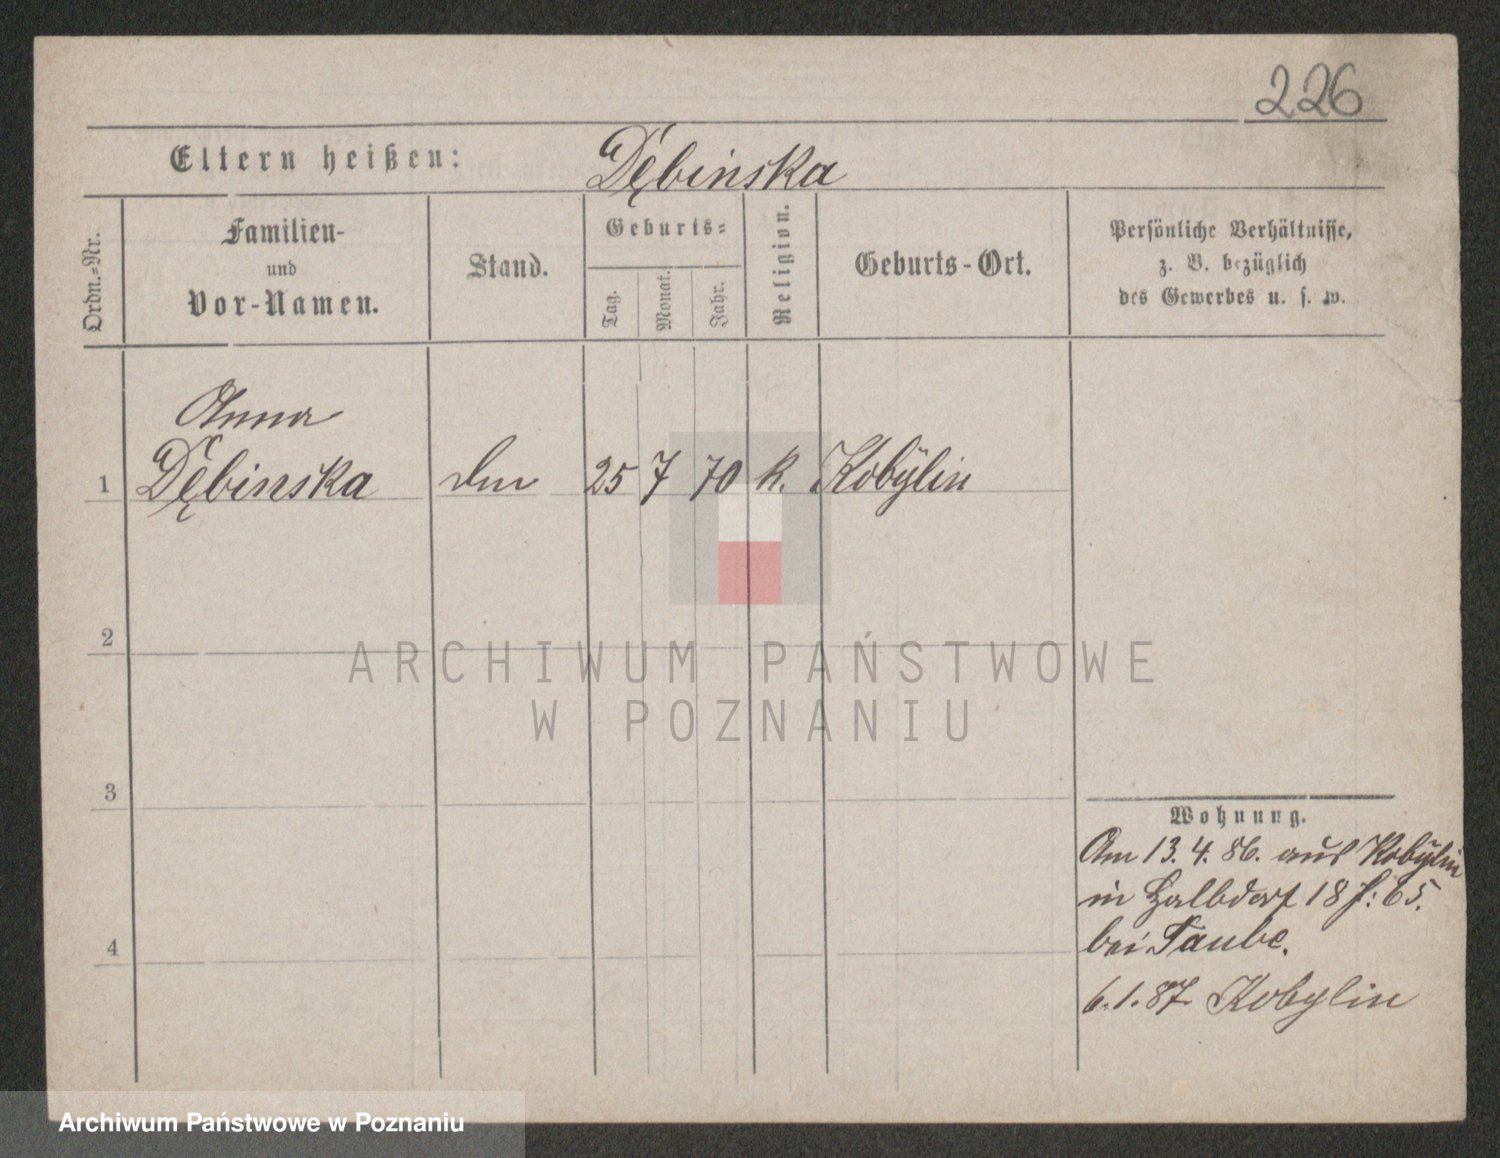 226
Eltern heißen: Dębinska
Ordn.-Nr.
Familien-
und
Vor-Namen.
Stand.
Geburts-
Tag.
Monat.
Jahr.
Religion.
Geburts-Ort.
Persönliche Verhältnisse,
z. B. bezüglich
des Gewerbes u. s. w.
Anna
1 Dębinska 25 7 70 k. Kobylin
2
ARCHIWUM PAŃSTWOWE
W POZNANIU
3
Wohnung.
Am 13. 4. 86. aus Kobylin
in Halbdorf 18 f: 65.
bei Taube.
4
6. 1. 87. Kobylin
Archiwum Państwowe w Poznaniu